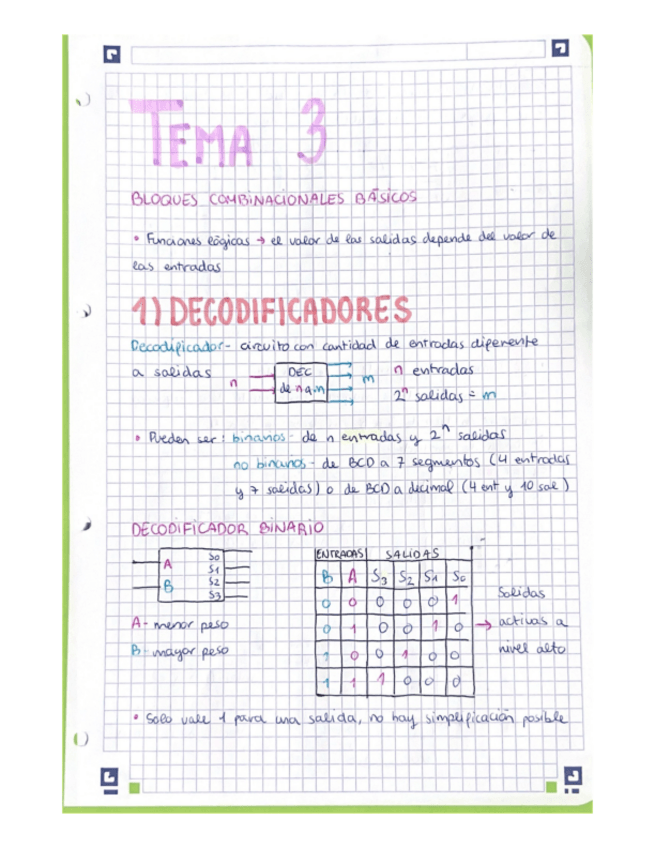 TEMA 3
BLOQUES COMBINACIONALES BÁSICOS
• Funciones lógicas → el valor de las salidas depende del valor de
las entradas
1) DECODIFICADORES
Decodificador- circuito con cantidad de entradas diferente
a salidas n DEC de n a m m n entradas
2ⁿ salidas = m
• Pueden ser: binarios- de n entradas y 2ⁿ salidas
no binarios- de BCD a 7 segmentos (4 entradas
y 7 salidas) o de BCD a decimal (4 ent y 10 sal)
DECODIFICADOR BINARIO
A B S0 S1 S2 S3
A- menor peso
B- mayor peso
ENTRADAS SALIDAS
B A S3 S2 S1 S0
0 0 0 0 0 1
0 1 0 0 1 0
1 0 0 1 0 0
1 1 1 0 0 0
Salidas
→ activas a
nivel alto
• Solo vale 1 para una salida, no hay simplificación posible